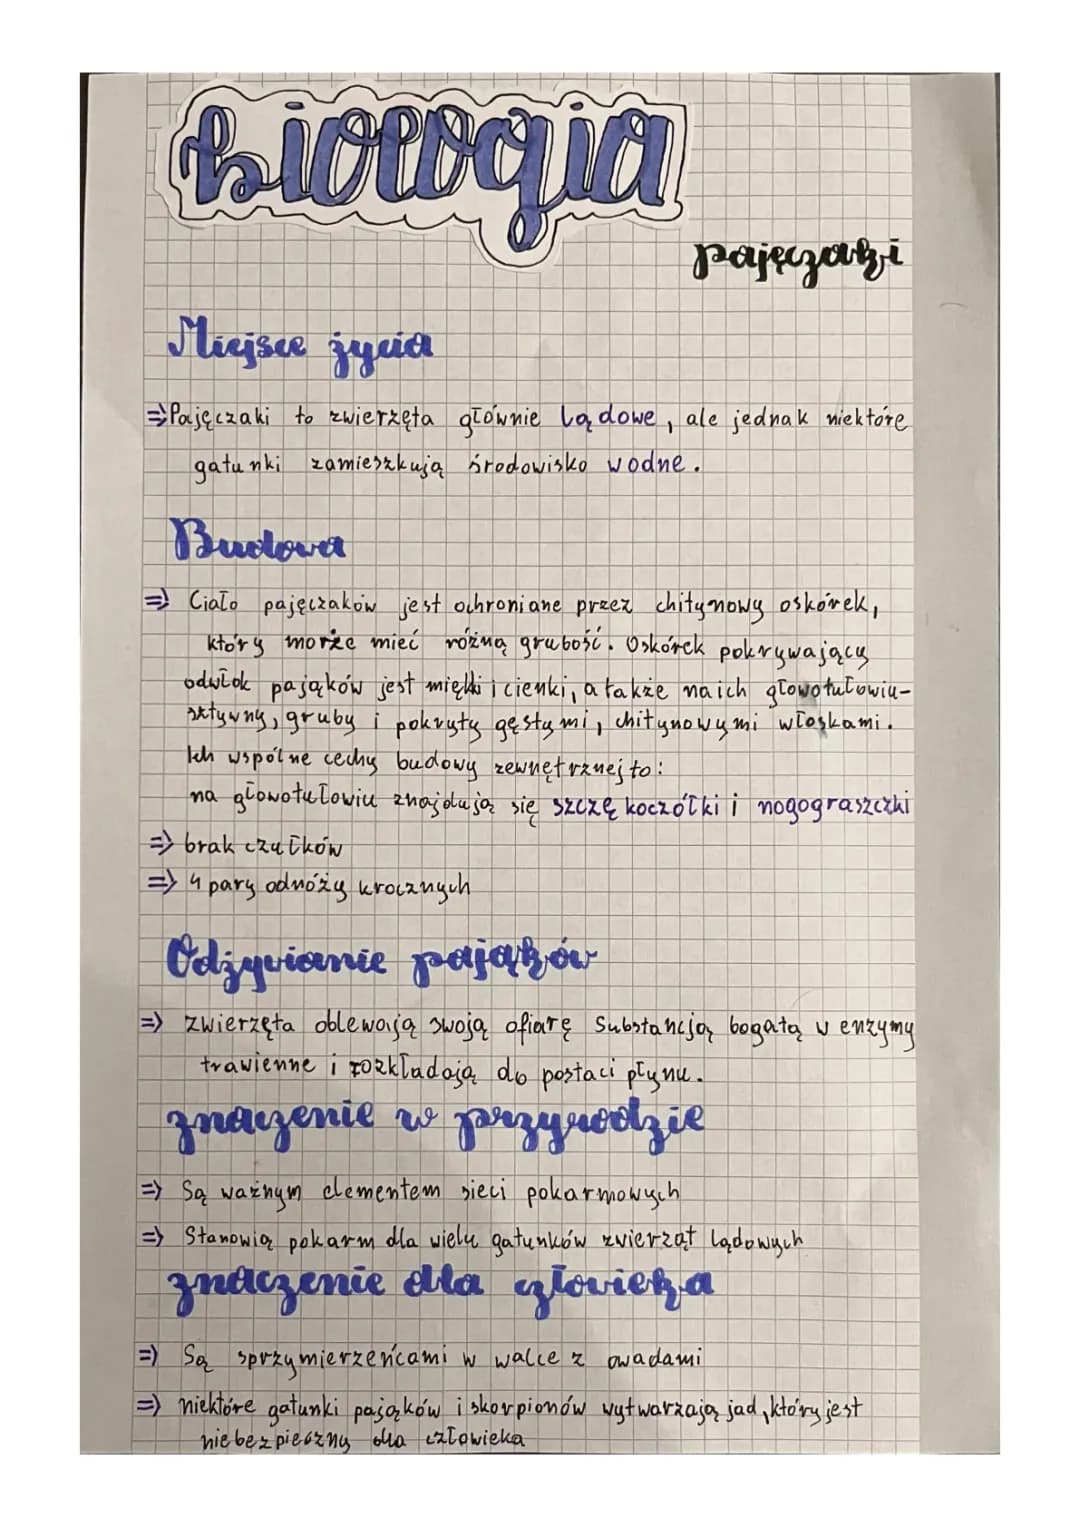 biologia
pajęczaki
Miejsce życia
⇒ Pajęczaki to zwierzęta głównie lądowe, ale jednak niektóre
gatunki zamieszkują środowisko wodne.
Budowa
⇒ Ciało pajęczaków jest ochroniane przez chitynowy oskórek,
który morze mieć różną grubość. Oskórek pokrywający
odwłok pająków jest miękki i cienki, a także na ich głowotułowiu-
sztywny, gruby i pokryty gęstymi, chitynowymi włoskami.
Ich wspólne cechy budowy zewnętrznej to:
na głowotułowiu znajdują się szczękoczółki i nogograszczki
⇒ brak czułków
⇒ 4 pary odnóży krocznych
Odżywianie pająków
⇒ zwierzęta oblewają swoją ofiarę substancją bogatą w enzymy
trawienne i rozkładają do postaci płynu.
znaczenie w przyrodzie
⇒ Są ważnym elementem sieci pokarmowych
⇒ Stanowią pokarm dla wielu gatunków zwierząt lądowych
znaczenie dla człowieka
⇒ Są sprzymierzeńcami w walce z owadami
⇒ niektóre gatunki pająków i skorpionów wytwarzają jad, który jest
niebezpieczny dla człowieka